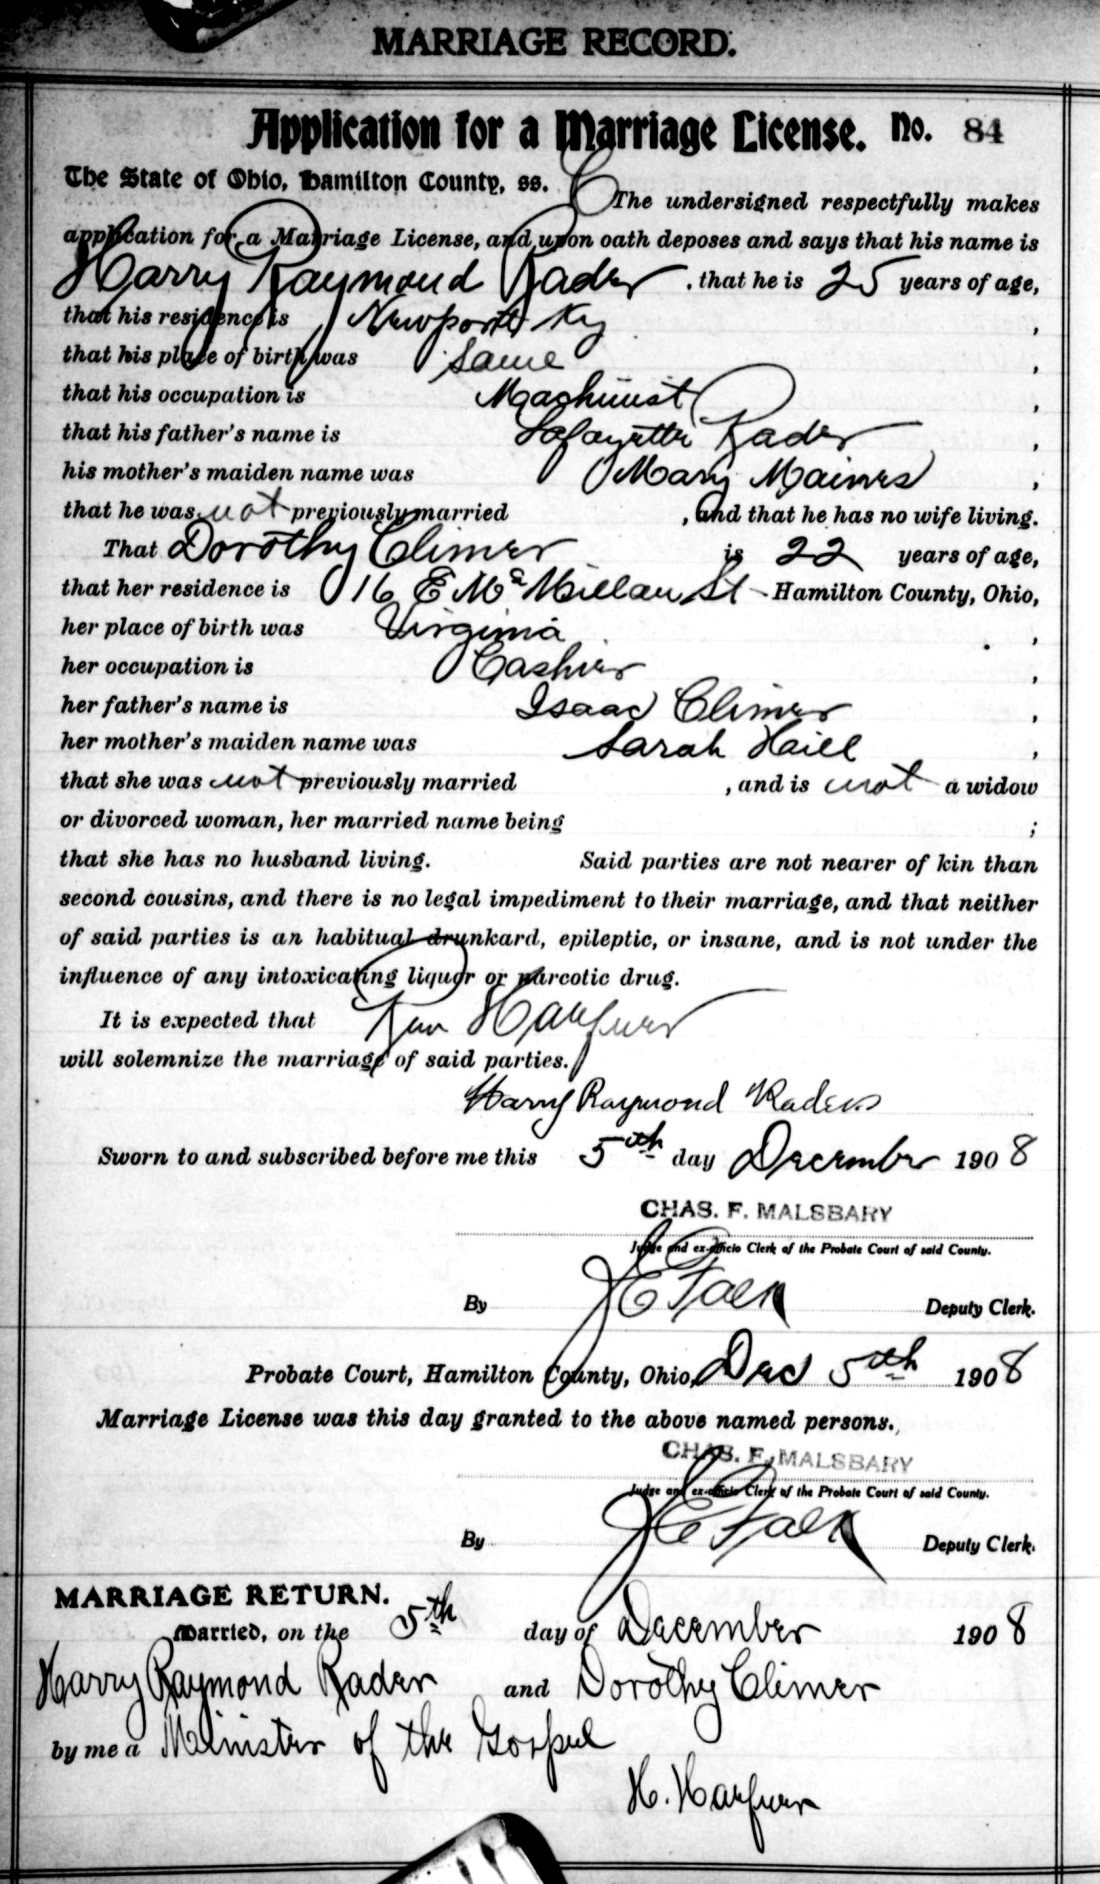 MARRIAGE RECORD.
Application for a Marriage License. No. 84
The State of Ohio, Hamilton County, ss. The undersigned respectfully makes
application for a Marriage License, and upon oath deposes and says that his name is
Harry Raymond Rader, that he is 25 years of age,
that his residence is Newport Ky,
that his place of birth was Same,
that his occupation is Machinist,
that his father's name is Lafayette Rader,
his mother's maiden name was Mary Maines,
that he was not previously married, and that he has no wife living.
That Dorothy Climer is 22 years of age,
that her residence is 16 E McMillan St Hamilton County, Ohio,
her place of birth was Virginia,
her occupation is Cashier,
her father's name is Isaac Climer,
her mother's maiden name was Sarah,
that she was not previously married, and is not a widow
or divorced woman, her married name being ;
that she has no husband living. Said parties are not nearer of kin than
second cousins, and there is no legal impediment to their marriage, and that neither
of said parties is an habitual drunkard, epileptic, or insane, and is not under the
influence of any intoxicating liquor or narcotic drug.
It is expected that
will solemnize the marriage of said parties.
Harry Raymond Rader
Sworn to and subscribed before me this 5th day December 1908
CHAS. F. MALSBARY
Judge and ex-officio Clerk of the Probate Court of said County.
By Deputy Clerk.
Probate Court, Hamilton County, Ohio, Dec 5th 1908
Marriage License was this day granted to the above named persons.
CHAS. F. MALSBARY
Judge and ex-officio Clerk of the Probate Court of said County.
By Deputy Clerk.
MARRIAGE RETURN.
Married, on the 5th day of December 1908
Harry Raymond Rader and Dorothy Climer
by me a Minister of the Gospel
H.